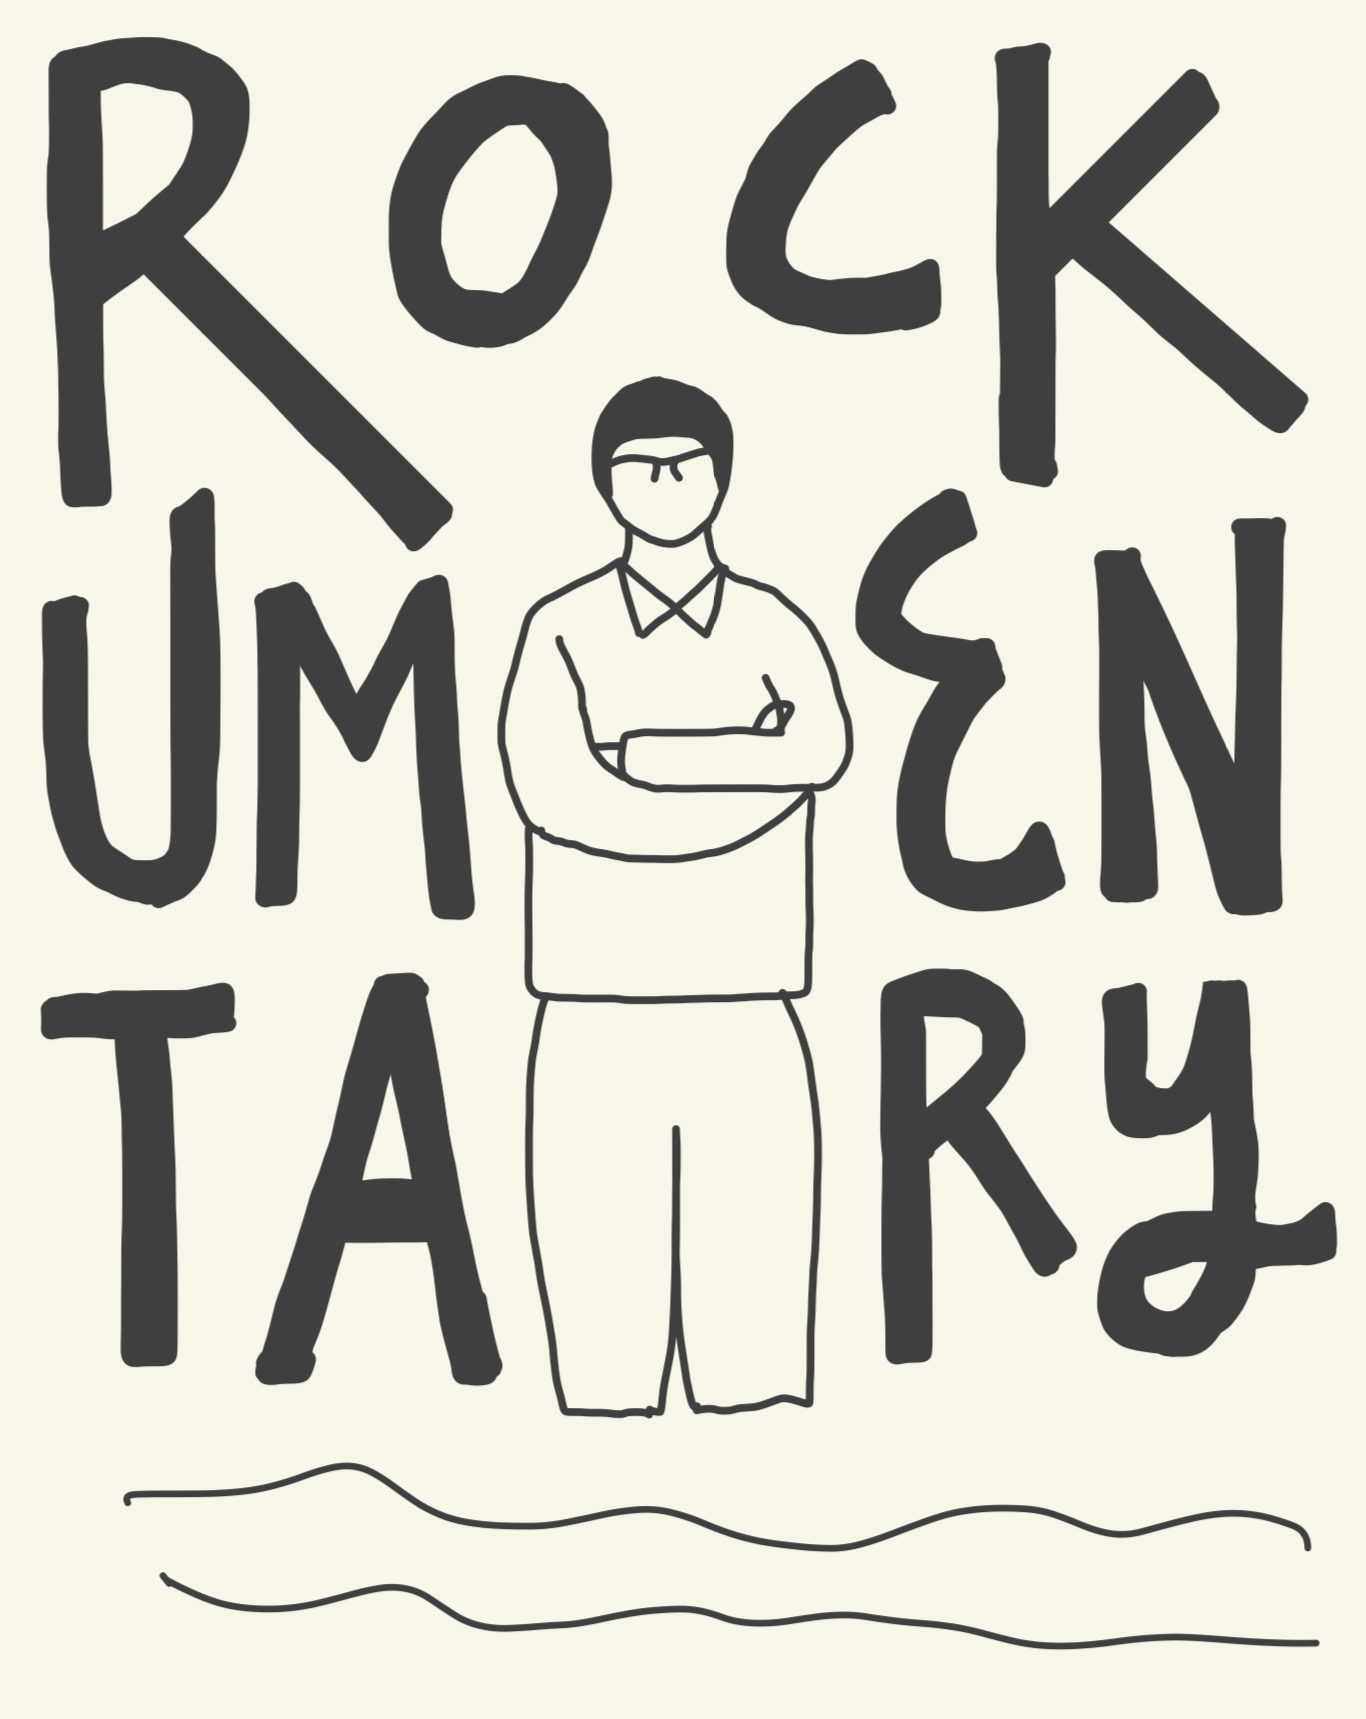 ROCK
UMEN
TARY